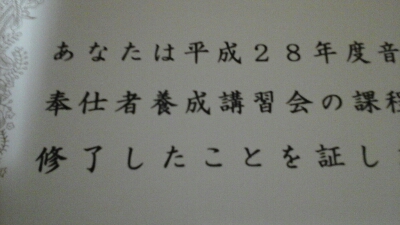 あなたは平成２８年度音
奉仕者養成講習会の課程
修了したことを証し